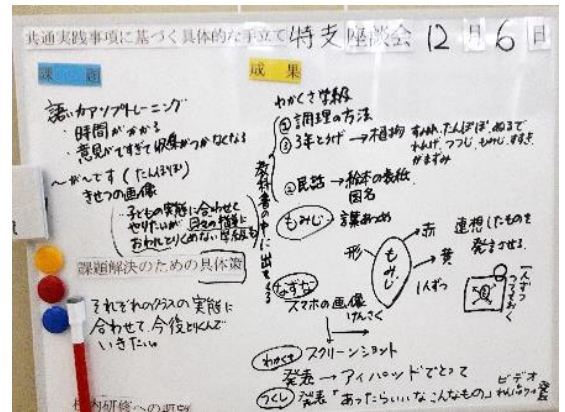 共通実践事項に基づく具体的な手立て 特支座談会 12月6日
課題
語いカアップトレーニング
・時間がかかる
・意見がですぎて収集がつかなくなる
〜が〜です(たんぽぽ)
きせつの画像
子どもの実態に合わせて
やりたいが 日々の指導に
おわれとりくめない 学級も
課題解決のための具体策
それぞれのクラスの実態に
合わせて、今後とりくんで
いきたい。
成果
わかくさ学級
教科書の中に出てくる
① 調理の方法
② 3年とうげ → 植物 すみれ、たんぽぽ、ぬるで
れんげ、つつじ、もみじ、すすき
がまずみ
民話 → 絵本の表紙
国名
もみじ 言葉あつめ
赤 連想したものを
発言させる
形
もみじ
黄
1人ずつ
なずな
スマホの画像
けんさく
一人ずつ
わかくさ スクリーンショット
発表 → アイパッドでとって
つくし 発表「あったらいいな こんなもの」
ビデオ